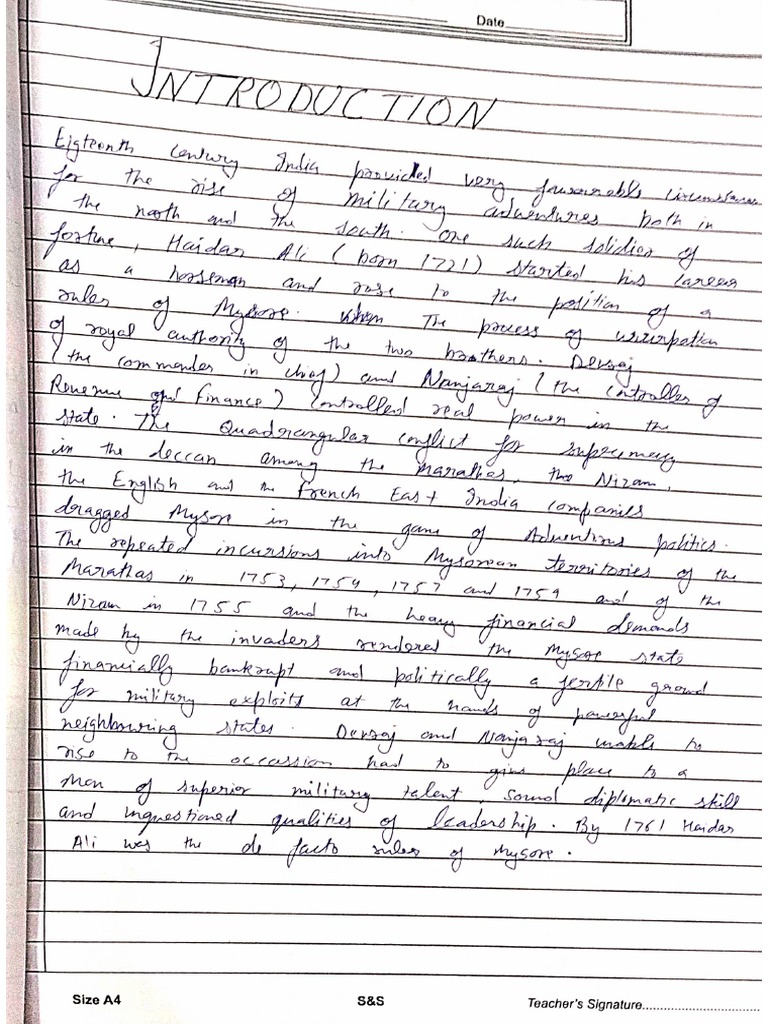 Date
INTRODUCTION
Eigteenth century India provided very favourable circumstances
for the rise of military adventures both in
the north and the south. One such solidier of
fortune, Haidar Ali (born 1721) started his career
as a horseman and rose to the position of a
ruler of Mysore. The process of usurpation
of royal authority of the two brothers. Devraj
(the commander in chief) and Nanjaraj (the controller of
Revenue and finance) controlled real power in the
state. The Quadrangular conflict for supremacy
in the deccan among the Marathas, the Nizam,
the English and the French East India companies
dragged Mysore in the game of Adventins politics.
The repeated incursions into Mysorean territories of the
Marathas in 1753, 1754, 1757 and 1759 and of the
Nizam in 1755 and the heavy financial demands
made by the invaders rendered the Mysore state
financially bankrupt and politically a fertile ground
for military exploits at the hands of powerful
neighbouring states. Devraj and Nanjaraj unable to
rise to the occassion had to give place to a
Man of superior military talent, sound diplomatic skill
and unquestioned qualities of leadership. By 1761 Haidar
Ali was the de facto ruler of Mysore.
Size A4
S&S
Teacher's Signature